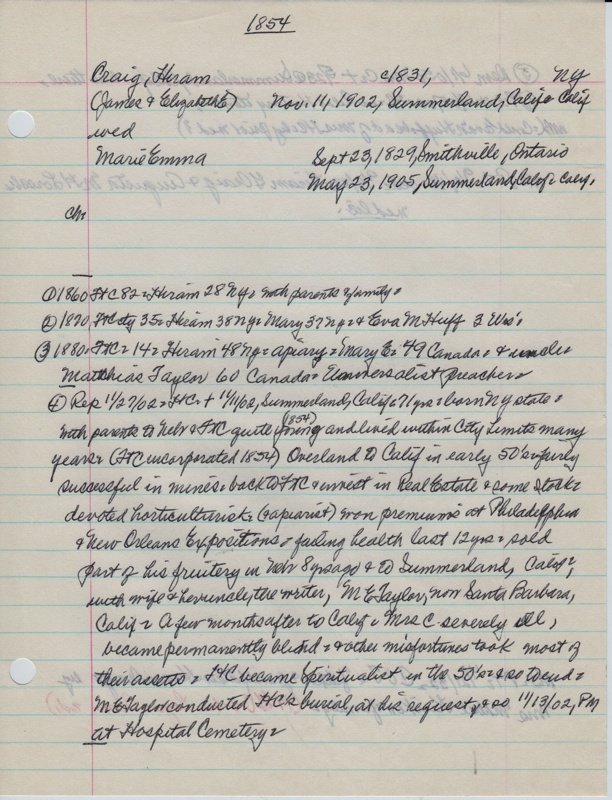 1854
Craig, Hiram c1831, NY
(James & Elizabeth E) Nov. 11, 1902, Summerland, Calif = Calif
wed
Marie Emma Sept 23, 1829, Smithville, Ontario
May 23, 1905, Summerland, Calif = Calif.
ch:
① 1860 FtC 82 = Hiram 28 NY = with parents & family =
② 1870 FtCty 35 = Hiram 38 NY = Mary 37 NY = & Eva M Huff 3 Wis =
③ 1880 FtC = 14 = Hiram 48 NY = apiary = Mary E = 49 Canada = & uncle =
Matthias Taylor 60 Canada = Universalist preacher =
④ Rep 11/27/02 = HC = + 11/11/02, Summerland, Calif = 71 yrs = born NY state =
with parents to Nebr & FtC quite young (1854) and lived within City limits many
years = (FtC incorporated 1854) Overland to Calif in early 50's = fairly
successful in mines = back to FtC & invest in Real Estate & some stock =
devoted horticulturist = (& apiarist) won premiums at Philadelphia
& New Orleans Expositions = failing health last 12 yrs = sold
part of his fruitery in Nebr 8 yrs ago & to Summerland, Calif =,
with wife & her uncle, the writer, M E Taylor, now Santa Barbara,
Calif = A few months after to Calif = Mrs C severely ill,
became permanently blind = & other misfortunes took most of
their assets = HC became Spiritualist in the 50's = & so to end =
M E Taylor conducted HC's burial, at his request, & so 11/13/02, PM
at Hospital Cemetery =